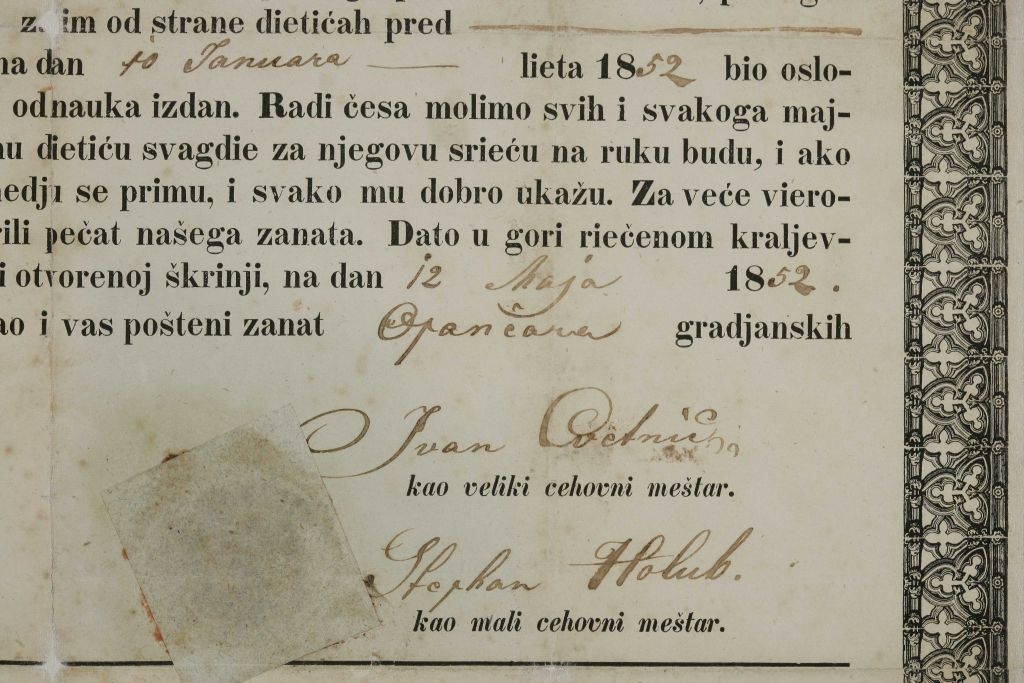 zatim od strane dietićah pred
na dan 10 Januara lieta 1852 bio oslo-
odnauka izdan. Radi česa molimo svih i svakoga maj-
mu dietiću svagdie za njegovu srieću na ruku budu, i ako
medju se primu, i svako mu dobro ukažu. Za veće viero-
rili pečat našega zanata. Dato u gori riečenom kraljev-
i otvorenoj škrinji, na dan 12 Maja 1852.
ao i vas pošteni zanat Opančara gradjanskih
Ivan
kao veliki cehovni meštar.
Stephan Holub.
kao mali cehovni meštar.